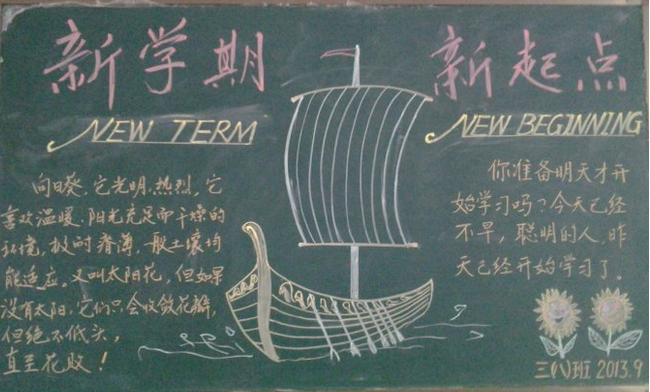 新学期
新起点
NEW TERM
NEW BEGINNING
向日葵,它光明、热烈,它
喜欢温暖、阳光充足而干燥的
环境,极耐瘠薄,一般土壤均
能适应。又叫太阳花,但如果
没有太阳,它们只会收敛花瓣,
但绝不低头,
直至花败!
你准备明天才开
始学习吗?今天已经
不早,聪明的人,昨
天已经开始学习了。
三(1)班 2013.9